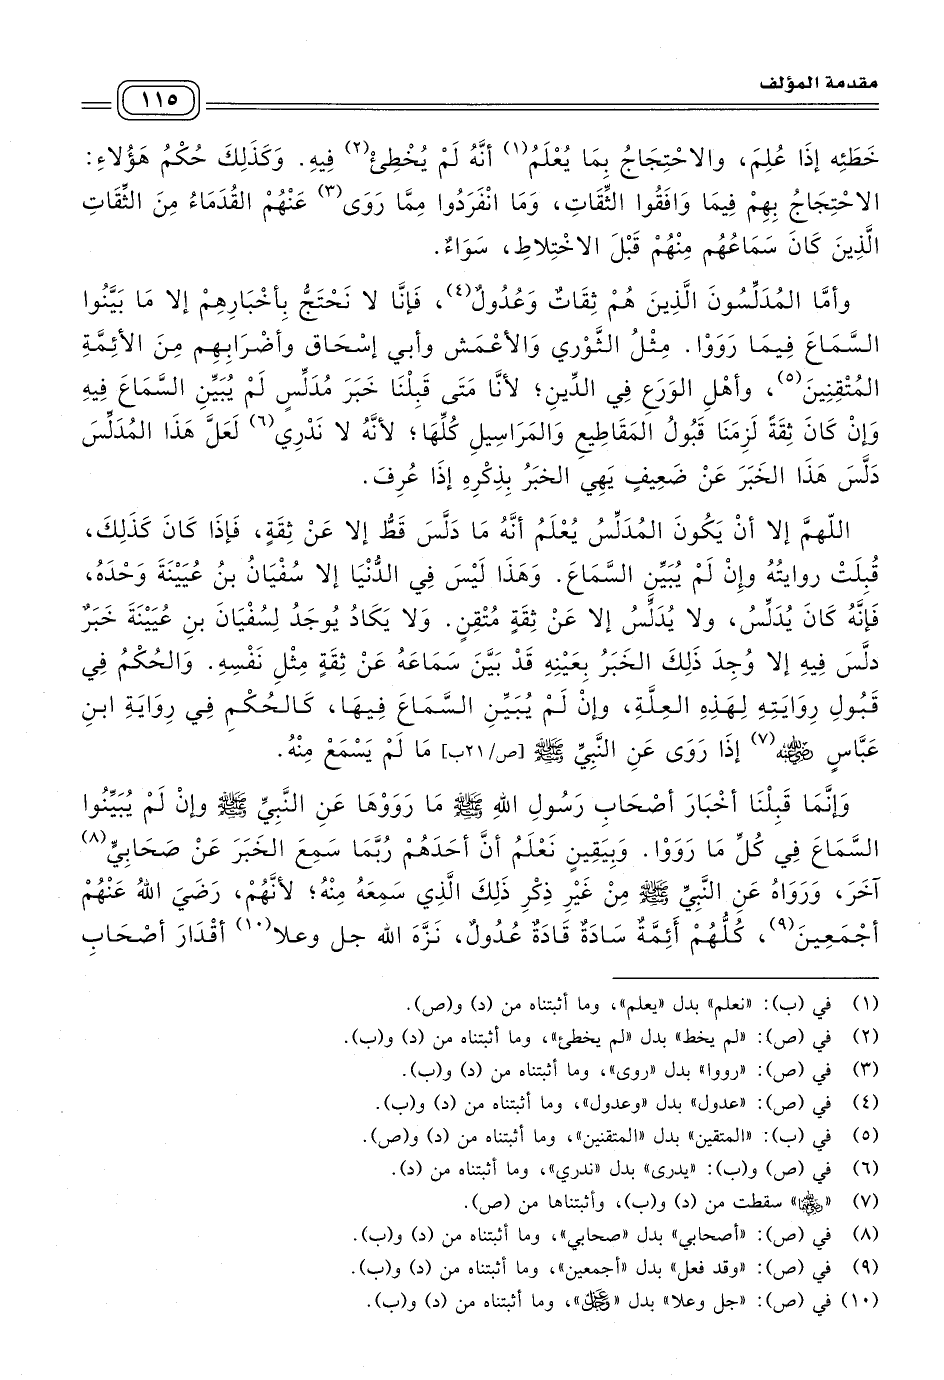 مقدمة المؤلف
١١٥
خَطَئِه إذَا عُلِمَ، والاحْتِجَاجُ بِمَا يُعْلَمُ(١) أنَّهُ لَمْ يُخْطِئْ(٢) فِيهِ. وَكَذَلِكَ حُكْمُ هَؤُلاءِ:
الاحْتِجَاجُ بِهِمْ فِيمَا وَافَقُوا الثِّقَاتِ، وَمَا انْفَرَدُوا مِمَّا رَوَى(٣) عَنْهُمْ القُدَمَاءُ مِنَ الثِّقَاتِ
الَّذِينَ كَانَ سَمَاعُهُم مِنْهُمْ قَبْلَ الاخْتِلاطِ، سَوَاءٌ.
وأمَّا المُدَلِّسُونَ الَّذِينَ هُمْ ثِقَاتٌ وَعُدُولٌ(٤)، فَإنَّا لا نَحْتَجُّ بِأخْبَارِهِمْ إلا مَا بَيَّنُوا
السَّمَاعَ فِيمَا رَوَوْا. مِثْلُ الثَّوْرِي وَالأعْمَش وأبي إسْحَاق وأضْرَابِهِم مِنَ الأئِمَّةِ
المُتْقِنِينَ(٥)، وأهْلِ الوَرَعِ فِي الدِّينِ؛ لأنَّا مَتَى قَبِلْنَا خَبَرَ مُدَلِّسٍ لَمْ يُبَيِّنِ السَّمَاعَ فِيهِ
وَإنْ كَانَ ثِقَةً لَزِمَنَا قَبُولُ المَقَاطِيعِ وَالمَرَاسِيلِ كُلِّهَا؛ لأنَّهُ لا نَدْرِي(٦) لَعَلَّ هَذَا المُدَلِّسَ
دَلَّسَ هَذَا الخَبَرَ عَنْ ضَعِيفٍ يَهِي الخَبَرُ بِذِكْرِهِ إذَا عُرِفَ.
اللَّهمَّ إلا أنْ يَكُونَ المُدَلِّسُ يُعْلَمُ أنَّهُ مَا دَلَّسَ قَطُّ إلا عَنْ ثِقَةٍ، فَإذَا كَانَ كَذَلِكَ،
قُبِلَتْ رِوايتُهُ وإنْ لَمْ يُبَيِّنِ السَّمَاعَ. وَهَذَا لَيْسَ فِي الدُّنْيَا إلا سُفْيَانُ بنُ عُيَيْنَةَ وَحْدَهُ،
فَإنَّهُ كَانَ يُدَلِّسُ، ولا يُدَلِّسُ إلا عَنْ ثِقَةٍ مُتْقِنٍ. وَلا يَكَادُ يُوجَدُ لِسُفْيَانَ بنِ عُيَيْنَةَ خَبَرٌ
دلَّسَ فِيهِ إلا وُجِدَ ذَلِكَ الخَبَرُ بِعَيْنِهِ قَدْ بَيَّنَ سَمَاعَهُ عَنْ ثِقَةٍ مِثْلِ نَفْسِهِ. وَالحُكْمُ فِي
قَبُولِ رِوَايَتِهِ لِهَذِهِ العِلَّةِ، وإنْ لَمْ يُبَيِّنِ السَّمَاعَ فِيهَا، كَالحُكْمِ فِي رِوَايَةِ ابنِ
عَبَّاسٍ رضي الله عنه(٧) إذَا رَوَى عَنِ النَّبِيِّ ﷺ [ص/٢١ب] مَا لَمْ يَسْمَعْ مِنْهُ.
وَإنَّمَا قَبِلْنَا أخْبَارَ أصْحَابِ رَسُولِ اللهِ ﷺ مَا رَوَوْهَا عَنِ النَّبِيِّ ﷺ وإنْ لَمْ يُبَيِّنُوا
السَّمَاعَ فِي كُلِّ مَا رَوَوْا. وَبِيَقِينٍ نَعْلَمُ أنَّ أحَدَهُمْ رُبَّمَا سَمِعَ الخَبَرَ عَنْ صَحَابِيٍّ(٨)
آخَرَ، وَرَوَاهُ عَنِ النَّبِيِّ ﷺ مِنْ غَيْرِ ذِكْرِ ذَلِكَ الَّذِي سَمِعَهُ مِنْهُ؛ لأنَّهُمْ، رَضَيَ اللهُ عَنْهُمْ
أجْمَعِينَ(٩)، كُلُّهُمْ أَئِمَّةٌ سَادَةٌ قَادَةٌ عُدُولٌ، نَزَّهَ الله جل وعلا(١٠) أقْدَارَ أصْحَابِ
(١) في (ب): «نعلم» بدل «يعلم»، وما أثبتناه من (د) و(ص).
(٢) في (ص): «لم يخط» بدل «لم يخطئ»، وما أثبتناه من (د) و(ب).
(٣) في (ص): «رووا» بدل «روى»، وما أثبتناه من (د) و(ب).
(٤) في (ص): «عدول» بدل «وعدول»، وما أثبتناه من (د) و(ب).
(٥) في (ب): «المتقين» بدل «المتقنين»، وما أثبتناه من (د) و(ص).
(٦) في (ص) و(ب): «يدرى» بدل «ندري»، وما أثبتناه من (د).
(٧) «رضي الله عنهما» سقطت من (د) و(ب)، وأثبتناها من (ص).
(٨) في (ص): «أصحابي» بدل «صحابي»، وما أثبتناه من (د) و(ب).
(٩) في (ص): «وقد فعل» بدل «أجمعين»، وما أثبتناه من (د) و(ب).
(١٠) في (ص): «جل وعلا» بدل «عز وجل»، وما أثبتناه من (د) و(ب).